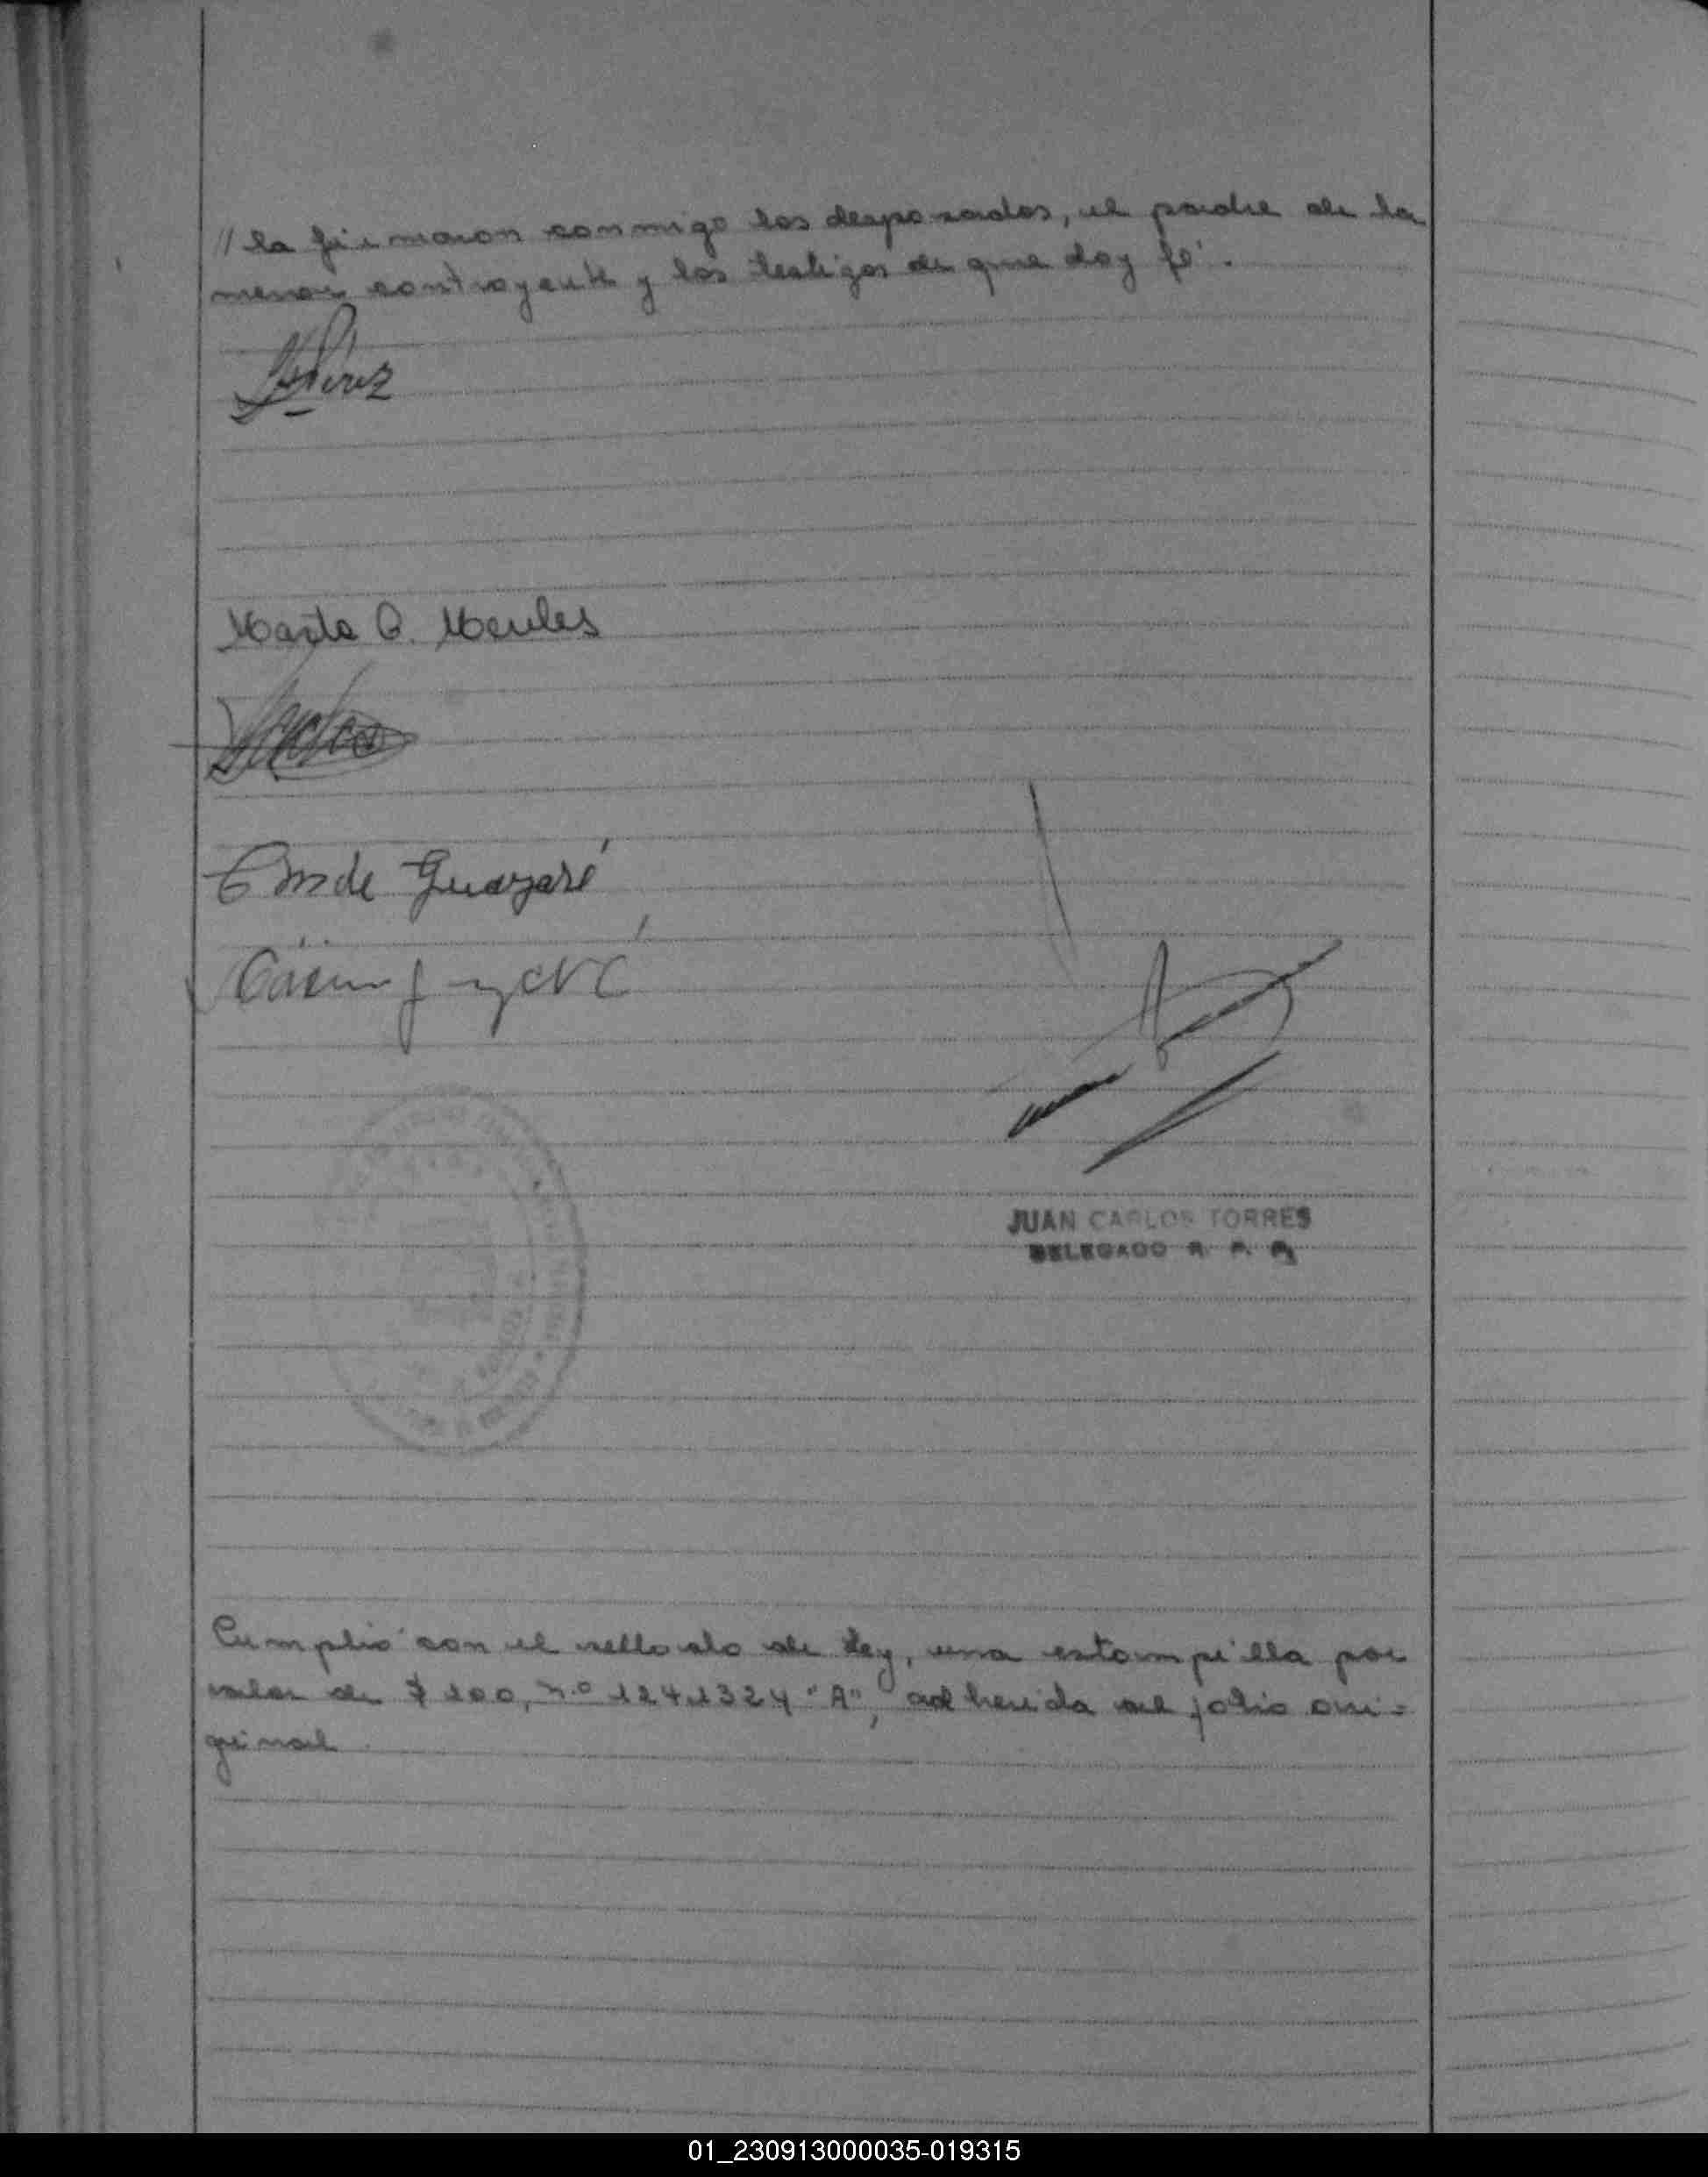 // la firmaron conmigo los desposados, el padre de la
menor contrayente y los testigos de que doy fé.
Marta A. Meules
E M de Guayaré
JUAN CARLOS TORRES
DELEGADO R. P. P.
Cumplió con el sellado de ley, una estampilla por
valor de $ 100, n.º 1241324 "A", adherida al folio ori=
ginal
01_230913000035-019315